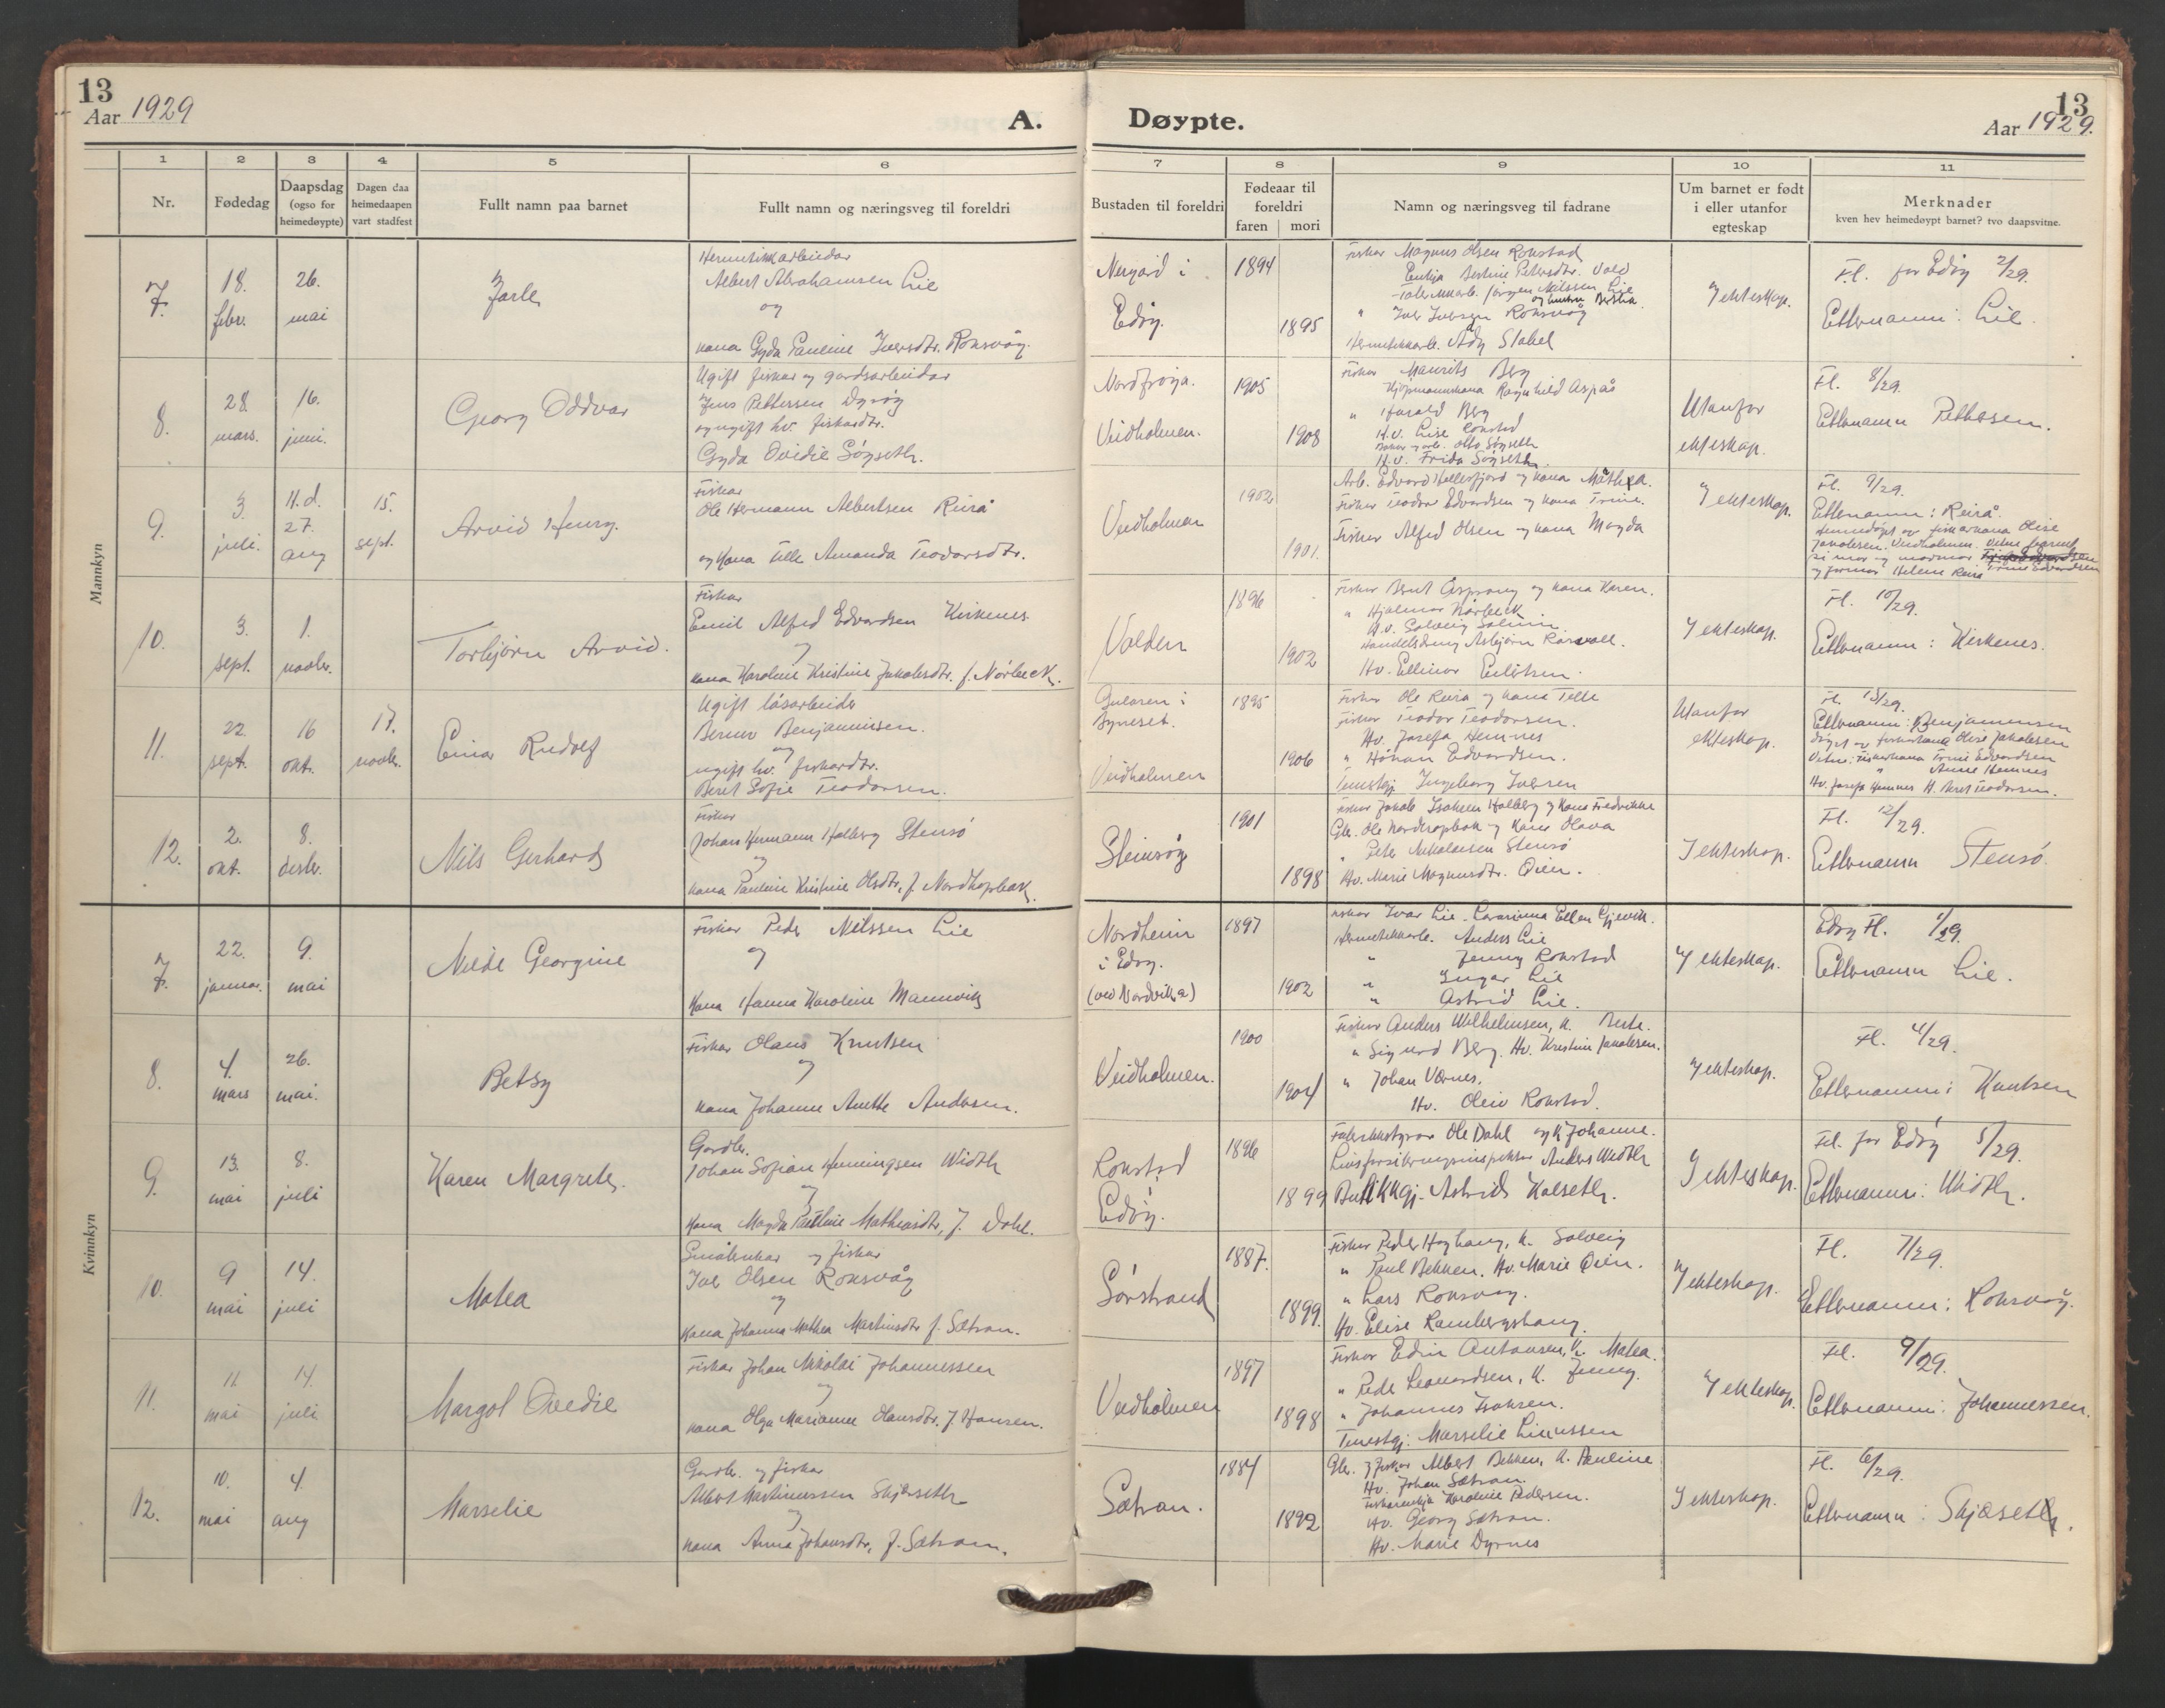 13
Aar 1929
A.
Døypte.
13
Aar 1929.
1 2 3 4 5 6 7 8 9 10 11
Nr.
Fødedag
Daapsdag
(ogso for
heimedøypte)
Dagen daa
heimedaapen
vart stadfest
Fullt namn paa barnet
Fullt namn og næringsveg til foreldri
Bustaden til foreldri
Fødeaar til
foreldri
faren mori
Namn og næringsveg til fadrane
Um barnet er født
i eller utanfor
egteskap
Merknader
kven hev heimedøypt barnet? tvo daapsvitne.
Mannkyn
7.
18.
febr.
26.
mai
Jarle
Hermetikkarbeidar
Albert Abrahamsen Lie
og
kona Gyda Pauline Iversdtr. Roksvåg.
Nergård i
Edøy.
1894
1895
Fiskar Magnus Olsen Rokstad
Enkja Bertine Petersdtr. Vold
Fabrikkarb. Jørgen Nilssen Lie
" Iver Iversen Roksvåg
Hermetikkarb. Ady Stabel
I ekteskap.
Fl. for Edøy 2/29.
Etternamn: Lie.
8.
28.
mars.
16.
juni.
Georg Oddvar
Ugift fiskar og gardsarbeidar
Jens Pettersen Dyrøy
og ugift hv. fiskardtr.
Gyda Ovidie Søyseth.
Nordfrøya.
Veidholmen.
1905
1908
Fiskar Maurits Berg
Kjøpmannskona Ragnhild Aspås
" Harald Berg
H.v. Lise Rokstad
Otto Søyseth
H.v. Frida Søyseth.
Utanfor
ekteskap.
Fl. 8/29.
Etternamn Pettersen.
9.
3.
juli.
H.d.
27.
aug
15.
sept.
Arvid Henry.
Fiskar
Ole Hermann Albertsen Reirå
og kona Tille Amanda Teodorsdtr.
Veidholmen
1902
1901.
Arb. Edvard Hellesfjord og kona Mathea.
Fiskar Teodor Edvardsen og kona Trine.
Fiskar Alfred Olsen og kona Magda
I ekteskap.
Fl. 9/29.
Etternamn: Reirå.
heimedøypt av fiskarkona Olise
Jakobsen. Veidholmen. Vitne barnet
si mor og mormor Trine Edvardsen
og farmor Helene Reirå
10.
3.
sept.
1.
novbr.
Torbjørn Arvid.
Fiskar
Emil Alfred Edvardsen Kirkenes.
og
kona Karoline Kristine Jakobsdtr. f. Nørbeck.
Valden
1896
1902
Fiskar Bernt Asprong og kona Karen.
" Hjalmar Nørbeck
H.v. Solveig
Handelsdreng Asbjørn Rosvoll.
Hv. Ellinor Eilertsen.
I ekteskap.
Fl. 10/29.
Etternamn: Kirkenes.
11.
22.
sept.
16
okt.
17.
novbr.
Einar Rudolf
Ugift låsarbeider
Berner Benjaminsen.
og
ugift hv. fiskardtr.
Beret Sofie Teodorsen.
Gularen i
Byneset.
Veidholmen
1895
1906
Fiskar Ole Reirå og kona Tille
Fiskar Teodor Teodorsen.
Hv. Josefa Hemnes
" Håkon Edvardsen.
Tenestgj. Ingeborg Iversen
Utanfor
ekteskap.
Fl. 13/29.
Etternamn: Benjaminsen
døypt av fiskarkona Olise Jakobsen
Vitne: Fiskarkona Trine Edvardsen
" Anne Hemnes
Hv. Josefa Hemnes H. Beret Teodorsen.
12.
2.
okt.
8.
desbr.
Nils Gerhard
Fiskar
Johan Hermann Holberg Stensø
og
kona Pauline Kristine Olsdtr, f. Nordhopbakk.
Steinsøy
1901
1898
Fiskar Jakob Isaksen Holberg og kona Fredrikke
Gbr. Ole Nordhopbakk og kona Olava
" Peter Nikolaisen Stensø
Hv. Marie Magnusdtr. Øien.
I ekteskap.
Fl. 12/29.
Etternamn Stensø.
Kvinnkyn
7.
22.
januar.
9.
mai
Nelde Georgine
Fiskar Peder Nilssen Lie
og
kona Hanna Karoline Mannvik
Nordheim
i Edøy.
(ved Nordvika)
1897
1902
Fiskar Ivar Lie. Lærarinna Ellen Gjevik.
Hermetikkarb. Anders Lie
" Jenny Rokstad
" Ingar Lie
" Astrid Lie.
I ekteskap.
Edøy Fl. 1/29.
Etternamn Lie.
8.
4.
mars
26.
mai.
Betsy
Fiskar Olaus Knutsen
og
kona Johanne Anette Andersen.
Veidholmen.
1900
1904
Fiskar Anders Wilhelmsen, k. Berte.
" Sigurd Berg. Hv. Kristine Jakobsen.
" Johan Værnes.
Hv. Oleiv Rokstad.
I ekteskap.
Fl. 4/29.
Etternamn: Knutsen
9.
13.
mai
8.
juli
Karen Margrete.
Gardbr.
Johan Sofian Henningsen Width
og
kona Magda Pauline Mathiasdtr, f. Dahl.
Rokstad
Edøy.
1896
1899
Fabrikkstyrar Ole Dahl og k. Johanne.
Livsforsikringsinspektør Anders Width
Butikkgj. Astrid Kalseth.
I ekteskap.
Fl. for Edøy 5/29.
Etternamn: Width.
10.
9
mai
14.
juli
Matea
Småbrukar og fiskar
Iver Olsen Roksvåg
og
kona Johanna Mathea Martinsdtr f. Sætran.
Sørstrand
1887.
1899.
Fiskar Peder Hoghaug, k. Solveig
" Paul Bekken. Hv. Marie Øien.
" Lars Roksvåg.
Hv. Elise Rambergshaug.
I ekteskap.
Fl. 7/29.
Etternamn: Roksvåg.
11.
11.
mai
14.
juli
Margot Ovedie
Fiskar Johan Nikolai Johannessen
og
kona Olga Marianne Olausdtr. f. Hansen.
Veidholmen
1897
1898
Fiskar Edin Antonsen, k. Matea.
" Peder Leonardsen, k. Jenny.
" Johannes Isaksen.
Tenestgj. Marselie Linussen
I ekteskap.
Fl. 9/29.
Etternamn: Johannessen.
12.
10.
mai
4.
aug
Marselie
Gardbr. og fiskar
Albert Martinussen Skjæseth
og
kona Anna Johansdtr, f. Sætran.
Sætran.
1884
1892
Gbr. og fiskar Albert Bekken, k. Pauline
Hv. Johan Sætran.
Fiskarenkja Karoline Pedersen.
Hv. Georg Sætran.
Hv. Marie Dyrnes
I ekteskap.
Fl. 6/29.
Etternamn: Skjæseth.